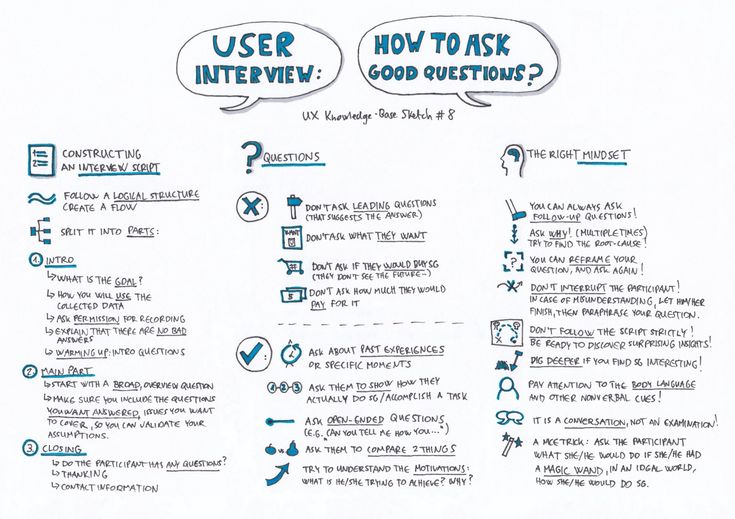 USER
INTERVIEW:
HOW TO ASK
GOOD QUESTIONS?
UX Knowledge-Base Sketch #8
CONSTRUCTING
AN INTERVIEW SCRIPT
FOLLOW A LOGICAL STRUCTURE
CREATE A FLOW
SPLIT IT INTO PARTS:
1. INTRO
↳ WHAT IS THE GOAL?
↳ HOW YOU WILL USE THE
COLLECTED DATA
↳ ASK PERMISSION FOR RECORDING
↳ EXPLAIN THAT THERE ARE NO BAD
ANSWERS
↳ WARMING UP: INTRO QUESTIONS
2. MAIN PART
↳ START WITH A BROAD, OVERVIEW QUESTION
↳ MAKE SURE YOU INCLUDE THE QUESTIONS
YOU WANT ANSWERED, ISSUES YOU WANT
TO COVER, SO YOU CAN VALIDATE YOUR
ASSUMPTIONS.
3. CLOSING
↳ DO THE PARTICIPANT HAS ANY QUESTIONS?
↳ THANKING
↳ CONTACT INFORMATION
? QUESTIONS
DON'T ASK LEADING QUESTIONS
(THAT SUGGESTS THE ANSWER)
WANT
DON'T ASK WHAT THEY WANT
DON'T ASK IF THEY WOULD BUY SG
(THEY DON'T SEE THE FUTURE...)
DON'T ASK HOW MUCH THEY WOULD
PAY FOR IT
ASK ABOUT PAST EXPERIENCES
OR SPECIFIC MOMENTS
1-2-3
ASK THEM TO SHOW HOW THEY
ACTUALLY DO SG/ACOMPLISH A TASK
ASK OPEN-ENDED QUESTIONS
(E.G. "CAN YOU TELL ME HOW YOU...")
VS
ASK THEM TO COMPARE 2 THINGS
TRY TO UNDERSTAND THE MOTIVATIONS:
WHAT IS HE/SHE TRYING TO ACHIEVE? WHY?
THE RIGHT MINDSET
YOU CAN ALWAYS ASK
FOLLOW-UP QUESTIONS!
ASK WHY! (MULTIPLE TIMES)
TRY TO FIND THE ROOT-CAUSE!
?
YOU CAN REFRAME YOUR
QUESTION, AND ASK AGAIN!
DON'T INTERRUPT THE PARTICIPANT!
IN CASE OF MISUNDERSTANDING, LET HIM/HER
FINISH, THEN PARAPHRASE YOUR QUESTION.
DON'T FOLLOW THE SCRIPT STRICTLY!
BE READY TO DISCOVER SURPRISING INSIGHTS!
DIG DEEPER IF YOU FIND SG INTERESTING!
PAY ATTENTION TO THE BODY LANGUAGE
AND OTHER NONVERBAL CUES!
IT IS A CONVERSATION, NOT AN EXAMINATION!
A NICE TRICK: ASK THE PARTICIPANT
WHAT SHE/HE WOULD DO IF SHE/HE HAD
A MAGIC WAND, IN AN IDEAL WORLD,
HOW SHE/HE WOULD DO SG.